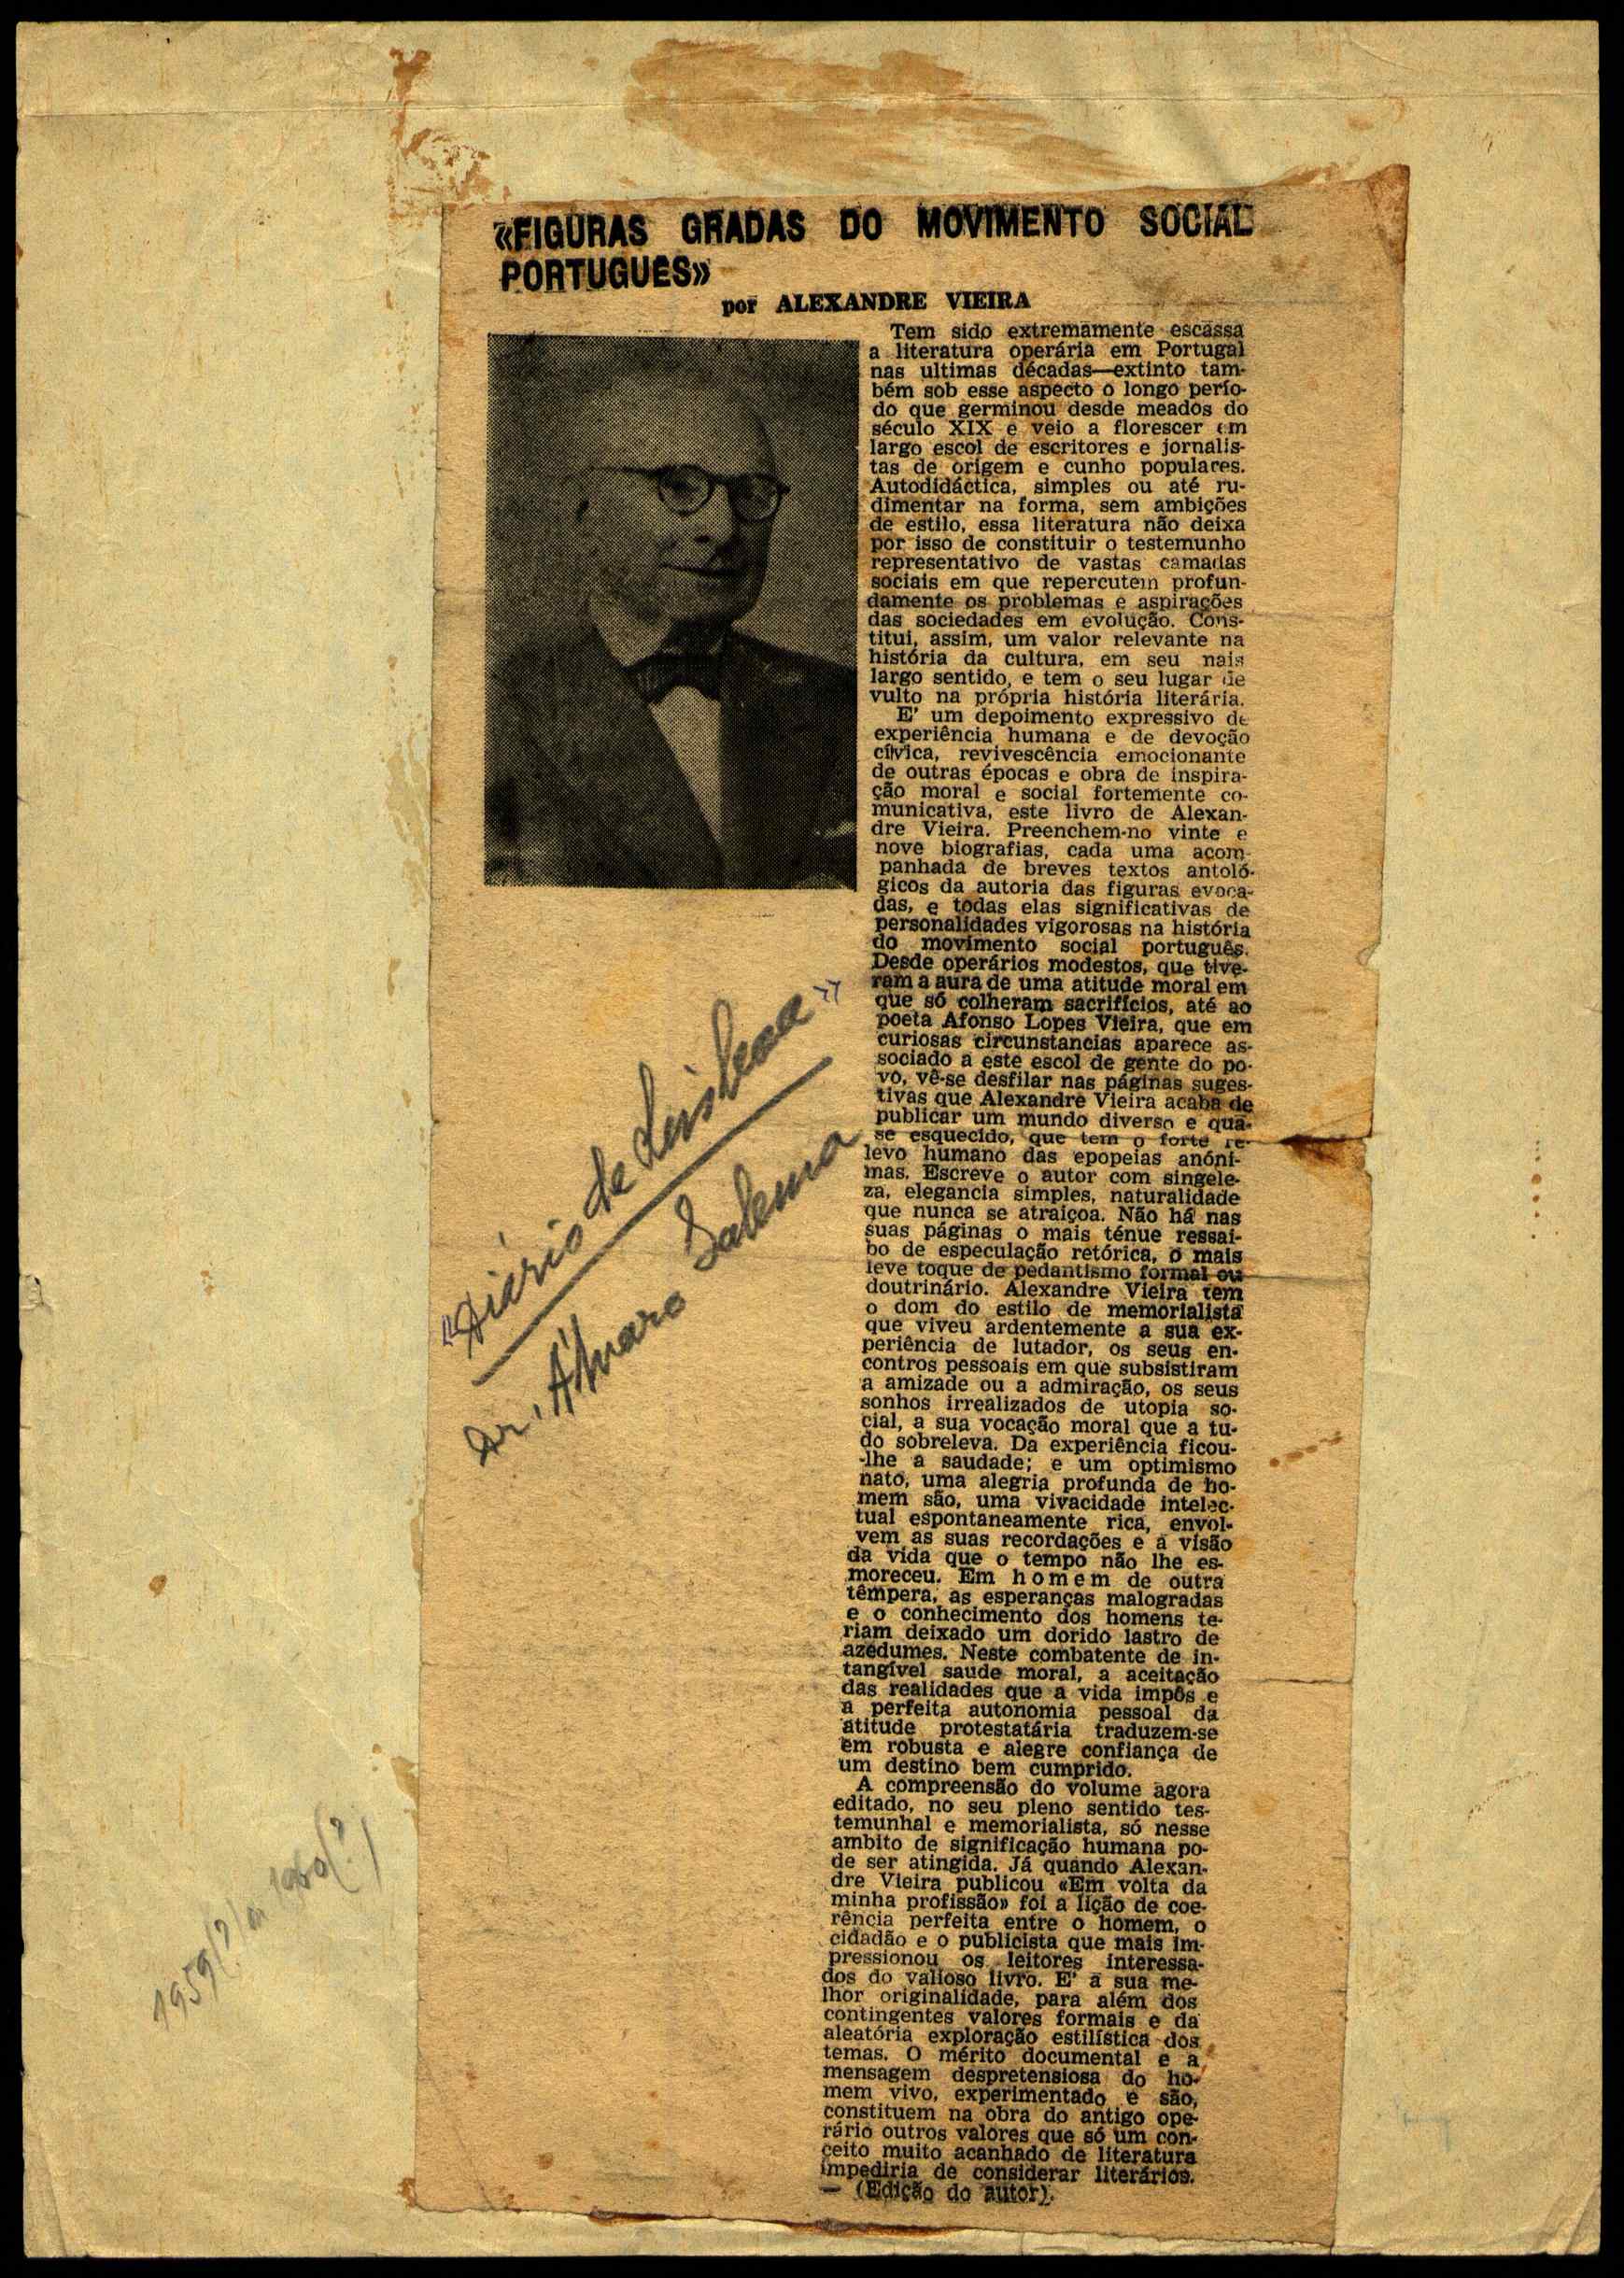 «FIGURAS GRADAS DO MOVIMENTO SOCIAL
PORTUGUES»
por ALEXANDRE VIEIRA
Tem sido extremamente escassa
a literatura operária em Portugal
nas ultimas décadas—extinto tam-
bém sob esse aspecto o longo perío-
do que germinou desde meados do
século XIX e veio a florescer em
largo escol de escritores e jornalis-
tas de origem e cunho populares.
Autodidáctica, simples ou até ru-
dimentar na forma, sem ambições
de estilo, essa literatura não deixa
por isso de constituir o testemunho
representativo de vastas camadas
sociais em que repercutem profun-
damente os problemas e aspirações
das sociedades em evolução. Cons-
titui, assim, um valor relevante na
história da cultura, em seu nais
largo sentido, e tem o seu lugar de
vulto na própria história literária.
E' um depoimento expressivo de
experiência humana e de devoção
cívica, revivescência emocionante
de outras épocas e obra de inspira-
ção moral e social fortemente co-
municativa, este livro de Alexan-
dre Vieira. Preenchem-no vinte e
nove biografias, cada uma acom-
panhada de breves textos antoló-
gicos da autoria das figuras evoca-
das, e todas elas significativas de
personalidades vigorosas na história
do movimento social português.
Desde operários modestos, que tive-
ram a aura de uma atitude moral em
que só colheram sacrifícios, até ao
poeta Afonso Lopes Vieira, que em
curiosas circunstancias aparece as-
sociado a este escol de gente do po-
vo, vê-se desfilar nas páginas suges-
tivas que Alexandre Vieira acaba de
publicar um mundo diverso e qua-
se esquecido, que tem o forte re-
levo humano das epopeias anóni-
mas. Escreve o autor com singele-
za, elegancia simples, naturalidade
que nunca se atraiçoa. Não há nas
suas páginas o mais ténue ressai-
bo de especulação retórica, o mais
leve toque de pedantismo formal ou
doutrinário. Alexandre Vieira tem
o dom do estilo de memorialista
que viveu ardentemente a sua ex-
periência de lutador, os seus en-
contros pessoais em que subsistiram
a amizade ou a admiração, os seus
sonhos irrealizados de utopia so-
cial, a sua vocação moral que a tu-
do sobreleva. Da experiência ficou-
-lhe a saudade; e um optimismo
nato, uma alegria profunda de ho-
mem são, uma vivacidade intelec-
tual espontaneamente rica, envol-
vem as suas recordações e a visão
da vida que o tempo não lhe es-
moreceu. Em homem de outra
têmpera, as esperanças malogradas
e o conhecimento dos homens te-
riam deixado um dorido lastro de
azedumes. Neste combatente de in-
tangível saude moral, a aceitação
das realidades que a vida impôs e
a perfeita autonomia pessoal da
atitude protestatária traduzem-se
em robusta e alegre confiança de
um destino bem cumprido.
A compreensão do volume agora
editado, no seu pleno sentido tes-
temunhal e memorialista, só nesse
ambito de significação humana po-
de ser atingida. Já quando Alexan-
dre Vieira publicou «Em volta da
minha profissão» foi a lição de coe-
rência perfeita entre o homem, o
cidadão e o publicista que mais im-
pressionou os leitores interessa-
dos do valioso livro. E' a sua me-
lhor originalidade, para além dos
contingentes valores formais e da
aleatória exploração estilística dos
temas. O mérito documental e a
mensagem despretensiosa do ho-
mem vivo, experimentado e são,
constituem na obra do antigo ope-
rário outros valores que só um con-
ceito muito acanhado de literatura
impediria de considerar literários.
— (Edição do autor).
"Diário de Lisboa"
Dr. Álvaro Salema
1959(?) ou 1960(?)